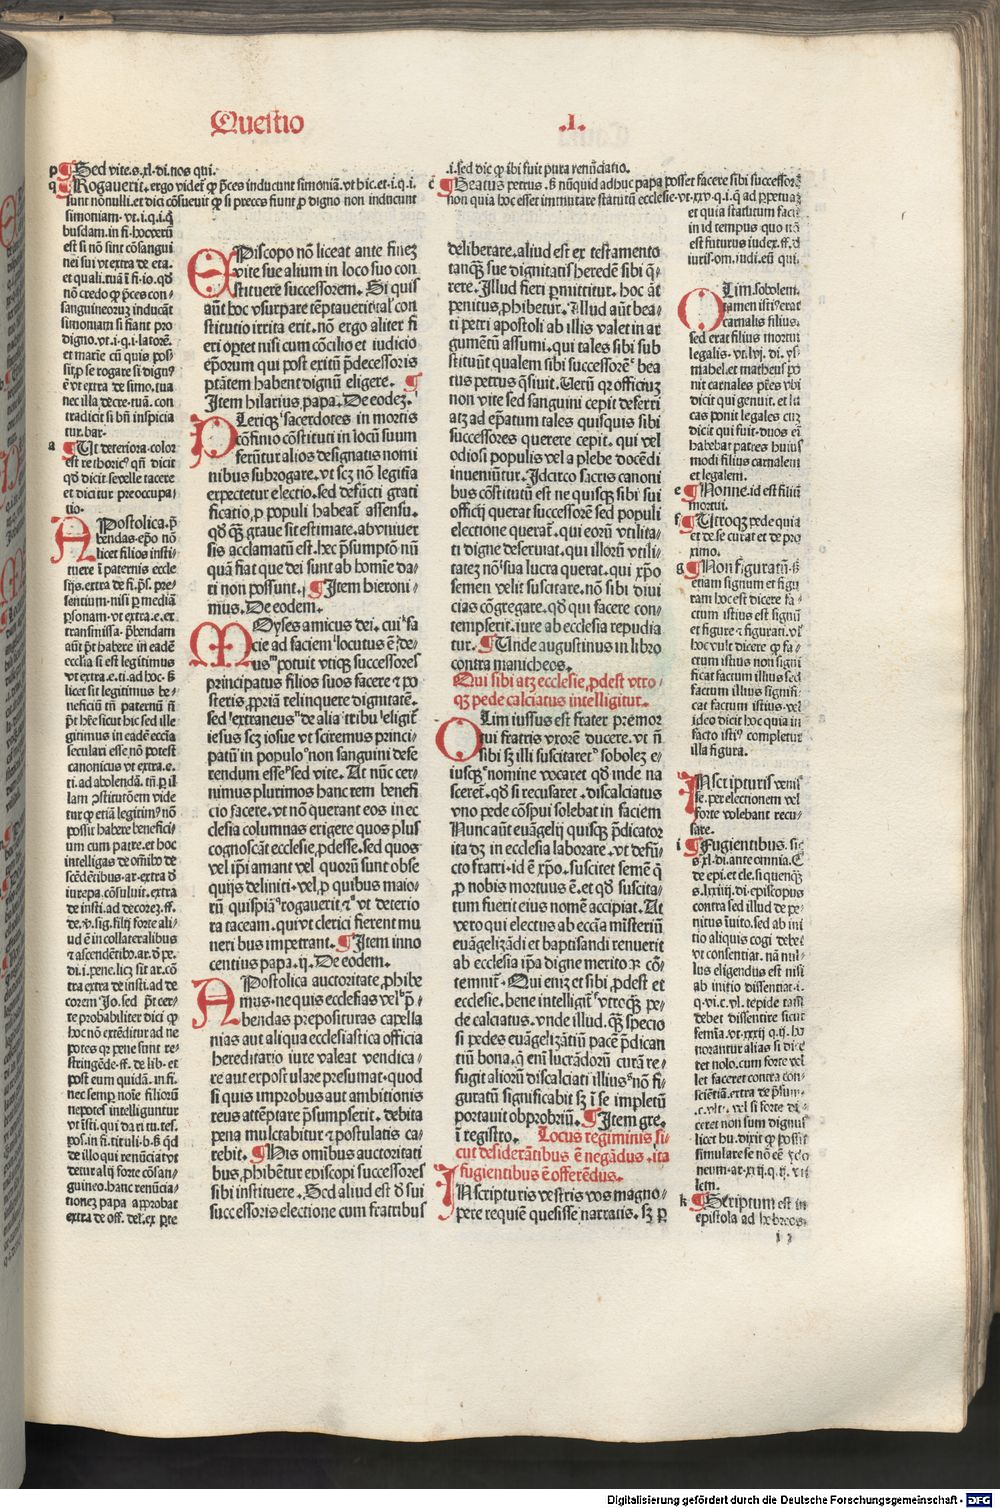 Questio .I.
p ¶Sed vite.s.xl.di.nos qui.
q ¶Rogauerit. ergo videt̃ ꝙ p̃ces inducunt simoniã.vt hic.et.i.q.i.
sunt nonulli.et dici cõsueuit ꝙ si preces fiunt ꝓ digno non inducunt
simoniam.vt.i.q.i.
est si nõ sint cõsangui
nei sui vt extra de eta.
et quali.tuã
nõ credo ꝙ p̃ces con-
sanguineoruʒ inducãt
simoniam si fiant pro
digno.vt.i.q.i.latorẽ.
ẽ vt extra de simo.tua
nec illa decre.tua.con
tradicit si bñ inspicia
tur.bar.
a ¶Ut deteriora.color
est rethoric⁹ qñ dicit
qd̃ dicit se velle tacere
et dicitur preoccupa/
tio.
APostolica.p̃
bendas.ep̃o nõ
licet filios insti/
tuere ĩ paternis eccle
sijs.extra de fi.p̃s.pre/
sentium.nisi ꝑ mediã
ꝑsonam.vt extra.e.ex
transmissa.p̃bendam
aũt p̃t habere in eadẽ
ecclĩa si est legitimus
vt extra.e.ti.ad hoc.
licet sit legitimus be/
neficiũ tñ paternũ ñ
gitimus in eadẽ eccĩa
seculari esse nõ potest
canonicus vt extra.e.
ti.ad abolendã.
possit habere benefici/
um cum patre.et hoc
intelligas de om̃ibo de
scẽdẽtibus.ar.extra ð
iurepa.cõsuluit.extra
de insti.ad decoreʒ.ff.
de.v.sig.filij forte ali/
ud ẽ in collateralibus
tra extra de insti.ad de
corem Jo.sed
te probabiliter dici ꝙ
hoc nõ extẽditur ad ne
potes q̃ pene sunt re/
stringẽde.ff.de lib.et
post eum quidã.in fi.
nec semp noĩe filiorũ
nepotes intelliguntur
de illo qui renũciat vt
detur alij forte cõsan/
guineo.hanc renũcia/
tioneʒ papa approbat
extra de off.del.ex p̃te
EPiscopo nõ liceat ante fineʒ
vite sue alium in loco suo con
stituere successorem. Si quis
aũt hoc vsurpare tẽptauerit:tal̃ con
stitutio irrita erit.nõ ergo aliter fi
eri oꝑtet nisi cum cõcilio et iudicio
ep̃orum qui post exitũ p̃decessoris
p̃tãtem habent dignũ eligere. ¶
Jtem hilarius papa. De eodeʒ.
PLeriqʒ sacerdotes in mortis
cõfinio cõstituti in locũ suum
ferũtur alios designatis nomi
nibus subrogare.vt scʒ nõ legitĩa
expectetur electio.sed defũcti grati
ficatio ꝓ populi habeat̃ assensu.
qd̃ qʒ graue sit estimate.ab vniuer
sis acclamatũ est.hec p̃sumptõ nũ
quã fiat que dei sunt ab homĩe da/
ri non possunt. ¶Jtem hieroni/
mus. De eodem.
MOyses amicus dei.cui fa
cie ad faciem locutus ẽ de/
us potuit vtiqʒ successores
principatus filios suos facere et po
steris ꝓpriã relinquere dignitatẽ.
sed extraneus de alia tribu eligit̃
iesus scʒ iosue vt sciremus princi/
patũ in populo non sanguini defe
rendum esse sed vite. At nũc cer/
nimus plurimos hanc rem benefi
cio facere.vt nõ querant eos in ec
clesia columnas erigere quos plus
cognoscãt ecclesie ꝓdesse.sed quos
vel ip̃i amant vel quorũ sunt obse
quijs deliniti.vel ꝓ quibus maio/
rũ quispiã rogauerit et vt deterio
ra taceam.qui vt clerici fierent mu
neri bus impetrant. ¶Jtem inno
centius papa.ij. De eodem.
APostolica auctoritate ꝓhibe
mus.ne quis ecclesias vel p̃/
bendas preposituras capella
nias aut aliqua ecclesiastica officia
hereditario iure valeat vendica/
re aut expostulare presumat.quod
si quis improbus aut ambitionis
reus attẽptare p̃sumpserit.debita
pena mulctabitur et postulatis ca/
rebit. ¶His omĩbus auctoritati
bus ꝓhibẽtur episcopi successores
sibi instituere. Sed aliud est ð sui
successoris electione cum fratribus
.i.sed dic ꝙ ibi fuit pura renũciatio.
c ¶Beatus petrus. nũquid adhuc papa posset facere sibi successorẽ
non quia hoc esset immutare statutũ ecclesie.vt.xxv.q.i.q̃ ad perpetuaʒ
deliberare.aliud est ex testamento
tanqʒ sue dignitatis heredẽ sibi q̃/
rere. Illud fieri ꝑmittitur. hoc ãt
penitus ꝓhibetur. et illud aũt bea/
ti petri apostoli ab illis valet in ar
gumẽtũ assumi.qui tales sibi sub
stituũt qualem sibi successorẽ bea
tus petrus q̃siuit. Uerũ qꝛ officiuʒ
non vite sed sanguini cepit deferri
atʒ ad ep̃atum tales quisquis sibi
successores querere cepit.qui vel
odiosi populis vel a plebe docẽdi
inueniũtur. Jdcirco sacris canoni
bus cõstitutũ est ne quisqʒ sibi sui
officij querat successorẽ sed populi
electione querat̃.qui eorũ vtilita/
ti digne deseruiat.qui illorũ vtili/
tateʒ nõ sua lucra querat.qui xp̃o
semen velit suscitare.nõ sibi diui
cias cõgregare.qd̃ qui facere con/
tempserit.iure ab ecclesia repudia
tur. ¶Unde augustinus in libro
contra manicheos.
Qui sibi atʒ ecclesie ꝓdest vtro/
qʒ pede calciatus intelligitur.
OLim iussus est frater premor
tui fratris vxorẽ ducere.vt ñ
sibi sʒ illi suscitaret sobolez e/
iusqʒ nomine vocaret qd̃ inde na
sceret̃.qd̃ si recusaret.discalciatus
vno pede cõspui solebat in faciem
Nunc aũt euãgelij quisqʒ p̃dicator
ita dʒ in ecclesia laborare.vt defũ/
cto fratri.id ẽ xp̃o.suscitet semẽ q̃
ꝓ nobis mortuus ẽ.et qd̃ suscita/
tum fuerit eius nomẽ accipiat. At
vero qui electus ab eccĩa mĩsteriũ
euãgelizãdi et baptisandi renuerit
ab ecclesia ip̃a digne merito ꝛ cõ/
temnit̃. Qui eniʒ et sibi ꝓdest et
ecclesie.bene intelligit̃ vtroqʒ pe/
de calciatus.vnde illud.qʒ specio
si pedes euãgelizãtiũ pacẽ p̃dican
tiũ bona.q̃ em̃ lucrãdorũ curã re/
fugit aliorũ discalciati illius nõ fi/
guratũ significabit sʒ ĩ se impletũ
portauit obprobriũ. ¶Jtem gre.
ĩ registro. Locus regiminis si/
cut desiderãtibus ẽ negãdus.ita
fugientibus ẽ offerẽdus.
JN scripturis vestris vos magno/
pere requiẽ quesisse narratis.sʒ ꝑ
et quia statutum facit
in id tempus quo nõ
est futurus iudex.ff.ð
iuris.om.iudi.eũ qui.
OLim sobolem.
tamen isti⁹ erat
carnalis filius.
sed erat filius mortui
legalis.vt.lvj.di.ys/
mahel.et matheus ꝓo
nit carnales pr̃es vbi
dicit qui genuit.et lu
cas ponit legales cuʒ
dicit qui fuit.duos eñ
habebat patres huius
modi filius carnalem
et legalem.
e ¶Nonne.id est filiũ
mortui.
f ¶Utroqʒ pede quia
et de se curat et de pro
ximo.
g ¶Non figuratũ.
etiam signum et figu
ram hoc est dicere fa/
ctum istius est signũ
et figure et figurati.vl̃
hoc vult dicere ꝙ fa/
ctum istius non signi
ficat factum illius sed
factum illius signifi/
cat factum istius.vel
ideo dicit hoc quia in
facto isti⁹ completur
illa figura.
JN scripturis veñis
se.per electionem vel
forte volebant recu/
sare.
i ¶Fugientibus. sic
s.xl.di.ante omnia.C
de epi.et cle.si quenqʒ
s.lxxiiij.di.episcopus
contra sed illud de pe/
nitus ĩuito.sed ab ini
tio aliquis cogi debet
vt consentiat.nã nul/
lus eligendus est nisi
ab initio dissentiat.i.
q.vi.c.vl.tepide tam̃
debet dissentire sicut
femĩa.vt.xxxij.q.ij.ho
norantur alias si di
et nolo.cum forte vel
let faceret contra con/
sciẽtiã.extra de p̃sum.
c.vlt. vel si forte di/
ceret non sum dignus
licet hu.dixit ꝙ possit
simulare se nõ
neum.ar.xxij.q.ij.vti
lem.
k ¶Scriptum est in
epistola ad hebreos.
Digitalisierung gefördert durch die Deutsche Forschungsgemeinschaft - DFG